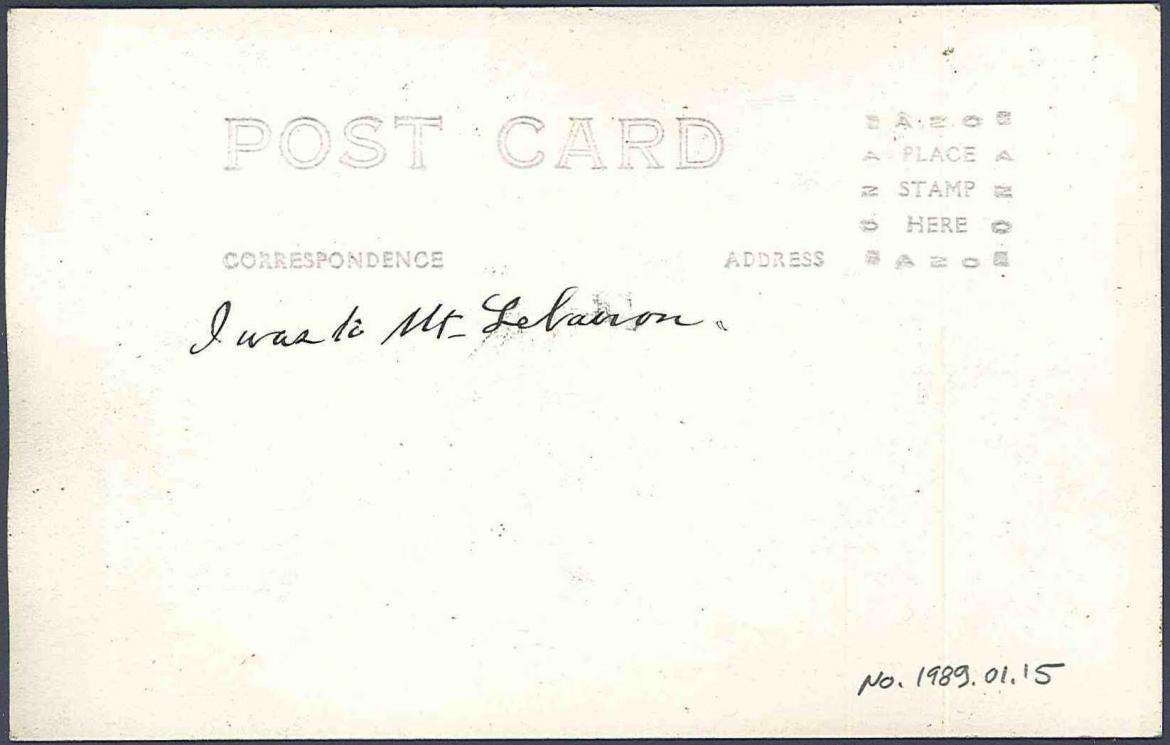 POST CARD
AZO
PLACE
STAMP
HERE
AZO
CORRESPONDENCE
ADDRESS
I was to Mt. Lebanon.
No. 1989.01.15